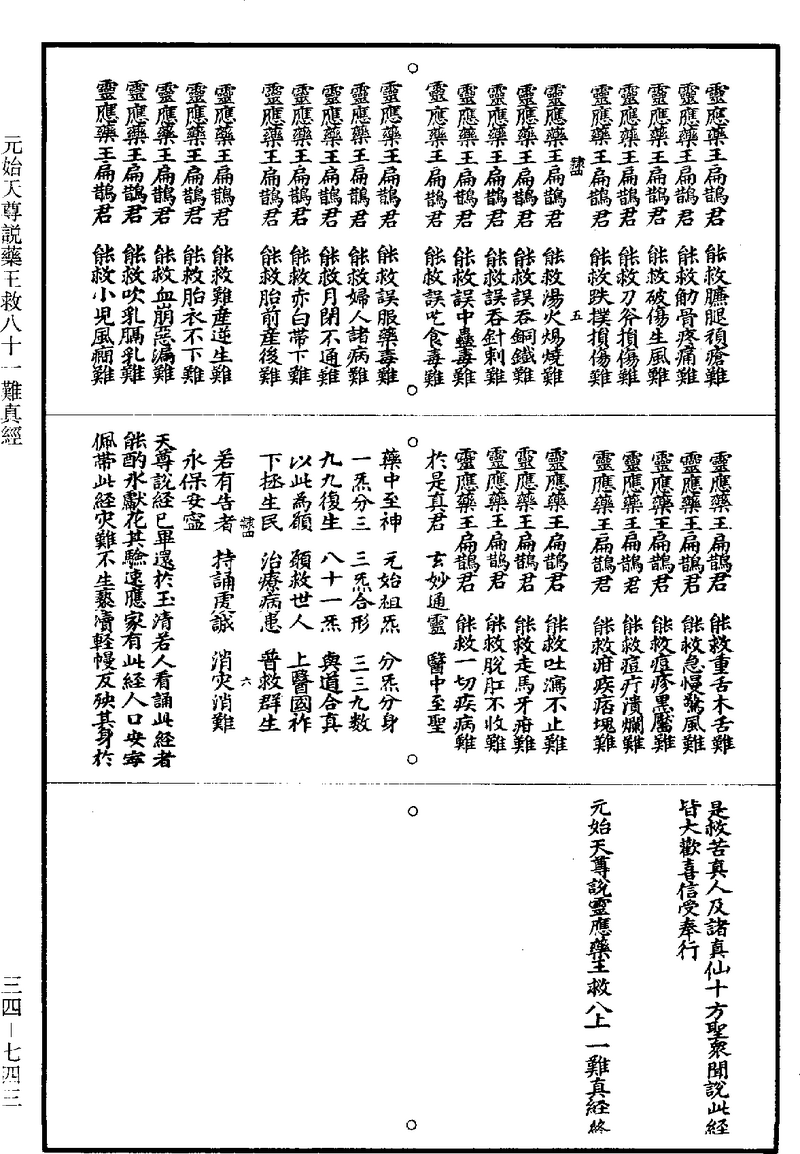 靈應藥王扁鵲君 能救臁腿頑瘡難
靈應藥王扁鵲君 能救觔骨疼痛難
靈應藥王扁鵲君 能救破傷生風難
靈應藥王扁鵲君 能救刀斧損傷難
靈應藥王扁鵲君 能救跌撲損傷難
隸四 五
靈應藥王扁鵲君 能救湯火燙燒難
靈應藥王扁鵲君 能救誤吞銅鐵難
靈應藥王扁鵲君 能救誤吞針刺難
靈應藥王扁鵲君 能救誤中蠱毒難
靈應藥王扁鵲君 能救誤吃食毒難
靈應藥王扁鵲君 能救誤服藥毒難
靈應藥王扁鵲君 能救婦人諸病難
靈應藥王扁鵲君 能救月閉不通難
靈應藥王扁鵲君 能救赤白帶下難
靈應藥王扁鵲君 能救胎前產後難
靈應藥王扁鵲君 能救難產逆生難
靈應藥王扁鵲君 能救胎衣不下難
靈應藥王扁鵲君 能救血崩惡漏難
靈應藥王扁鵲君 能救吹乳膈乳難
靈應藥王扁鵲君 能救小兒風癇難
靈應藥王扁鵲君 能救重舌木舌難
靈應藥王扁鵲君 能救急慢驚風難
靈應藥王扁鵲君 能救痘疹黑黶難
靈應藥王扁鵲君 能救痘疔潰爛難
靈應藥王扁鵲君 能救疳疾痞塊難
靈應藥王扁鵲君 能救吐瀉不止難
靈應藥王扁鵲君 能救走馬牙疳難
靈應藥王扁鵲君 能救脫肛不收難
靈應藥王扁鵲君 能救一切疾病難
於是真君 玄妙通靈 醫中至聖
藥中至神 元始祖炁 分炁分身
一炁分三 三炁合形 三三九數
九九復生 八十一炁 與道合真
以此為願 願救世人 上醫國祚
下拯生民 治療病患 普救群生
隸四 六
若有告者 持誦虔誠 消灾消難
永保安寧
天尊說經已畢還於玉清若人看誦此經者
能酌水獻花其驗速應家有此經人口安寧
佩帶此經灾難不生褻瀆輕慢反殃其身於
是救苦真人及諸真仙十方聖衆聞說此經
皆大歡喜信受奉行
元始天尊說靈應藥王救八上一難真經終
元始天尊説藥王救八十一難真經
三四－七四三